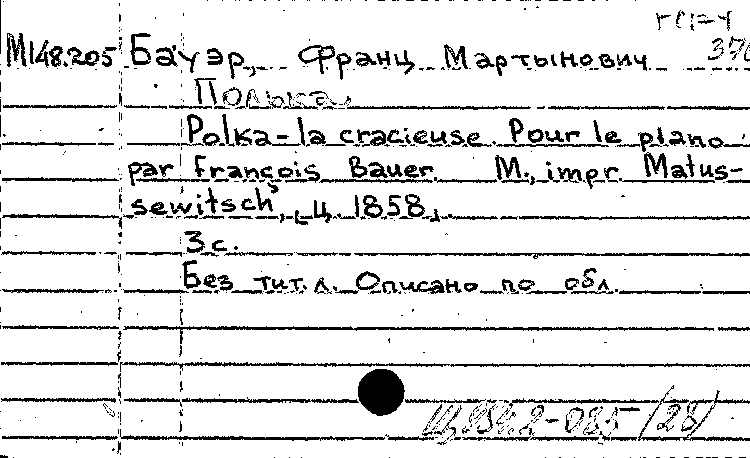 М148.205 Бауэр, Франц Мартынович 370
Полька.
Polka-la cracieuse. Pour le piano
par François Bauer. М., impr. Matus-
sewitsch's, [ц. 1858].
3 с.
Без тит. л. Описано по обл.